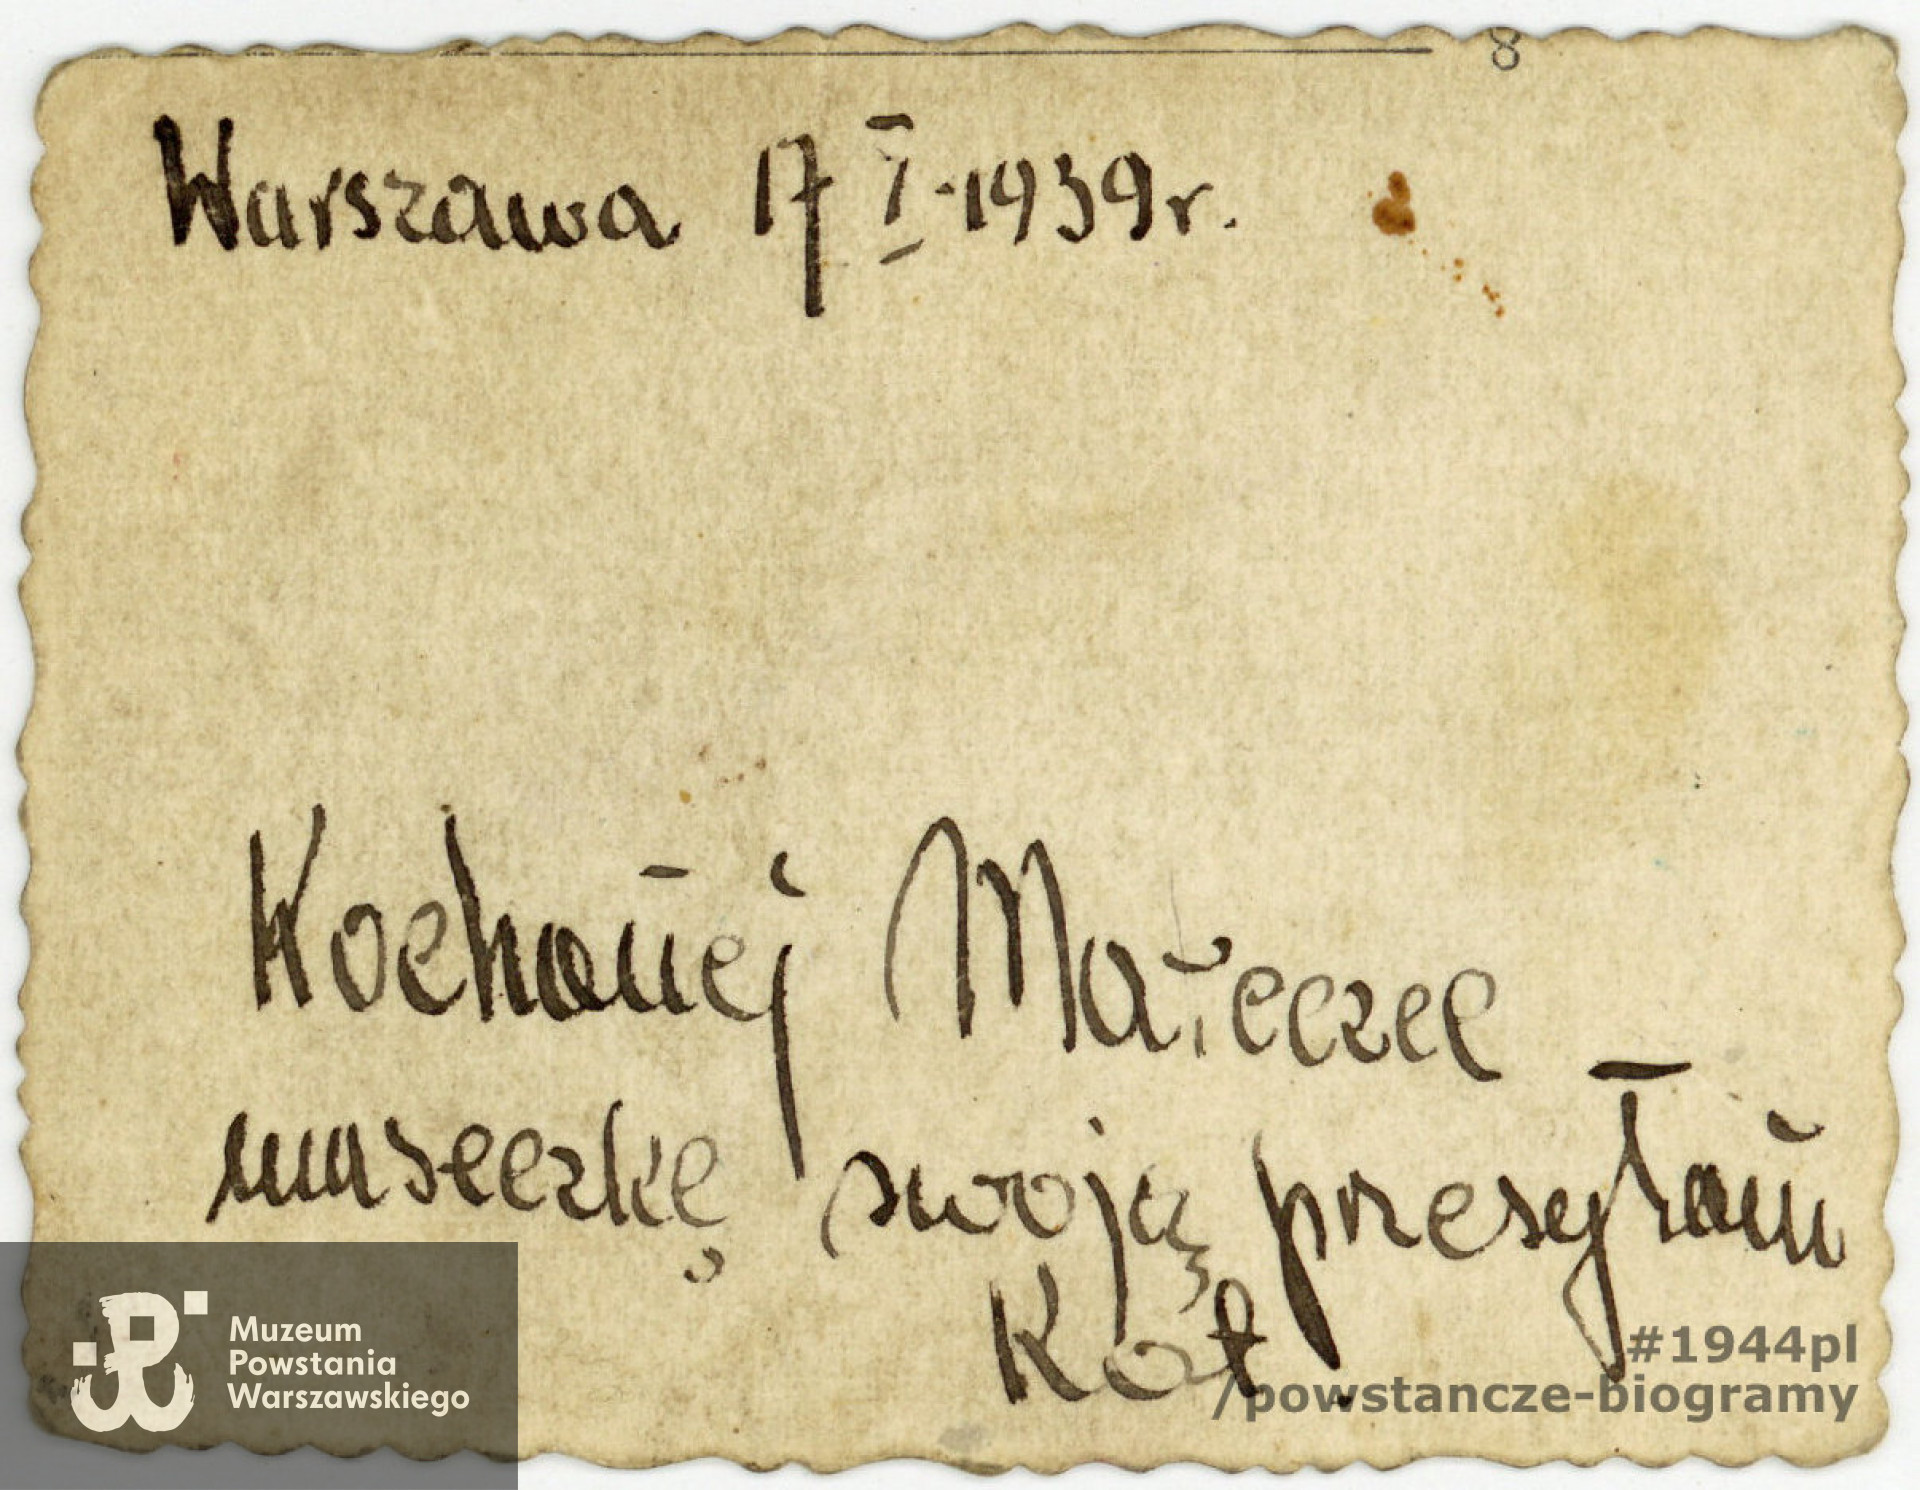 8
Warszawa 17 I-1939r.
Kochanej Mateczce
museczkę swoją przesyłam
Kot.
Muzeum
Powstania
Warszawskiego
#1944pl
/powstancze-biogramy